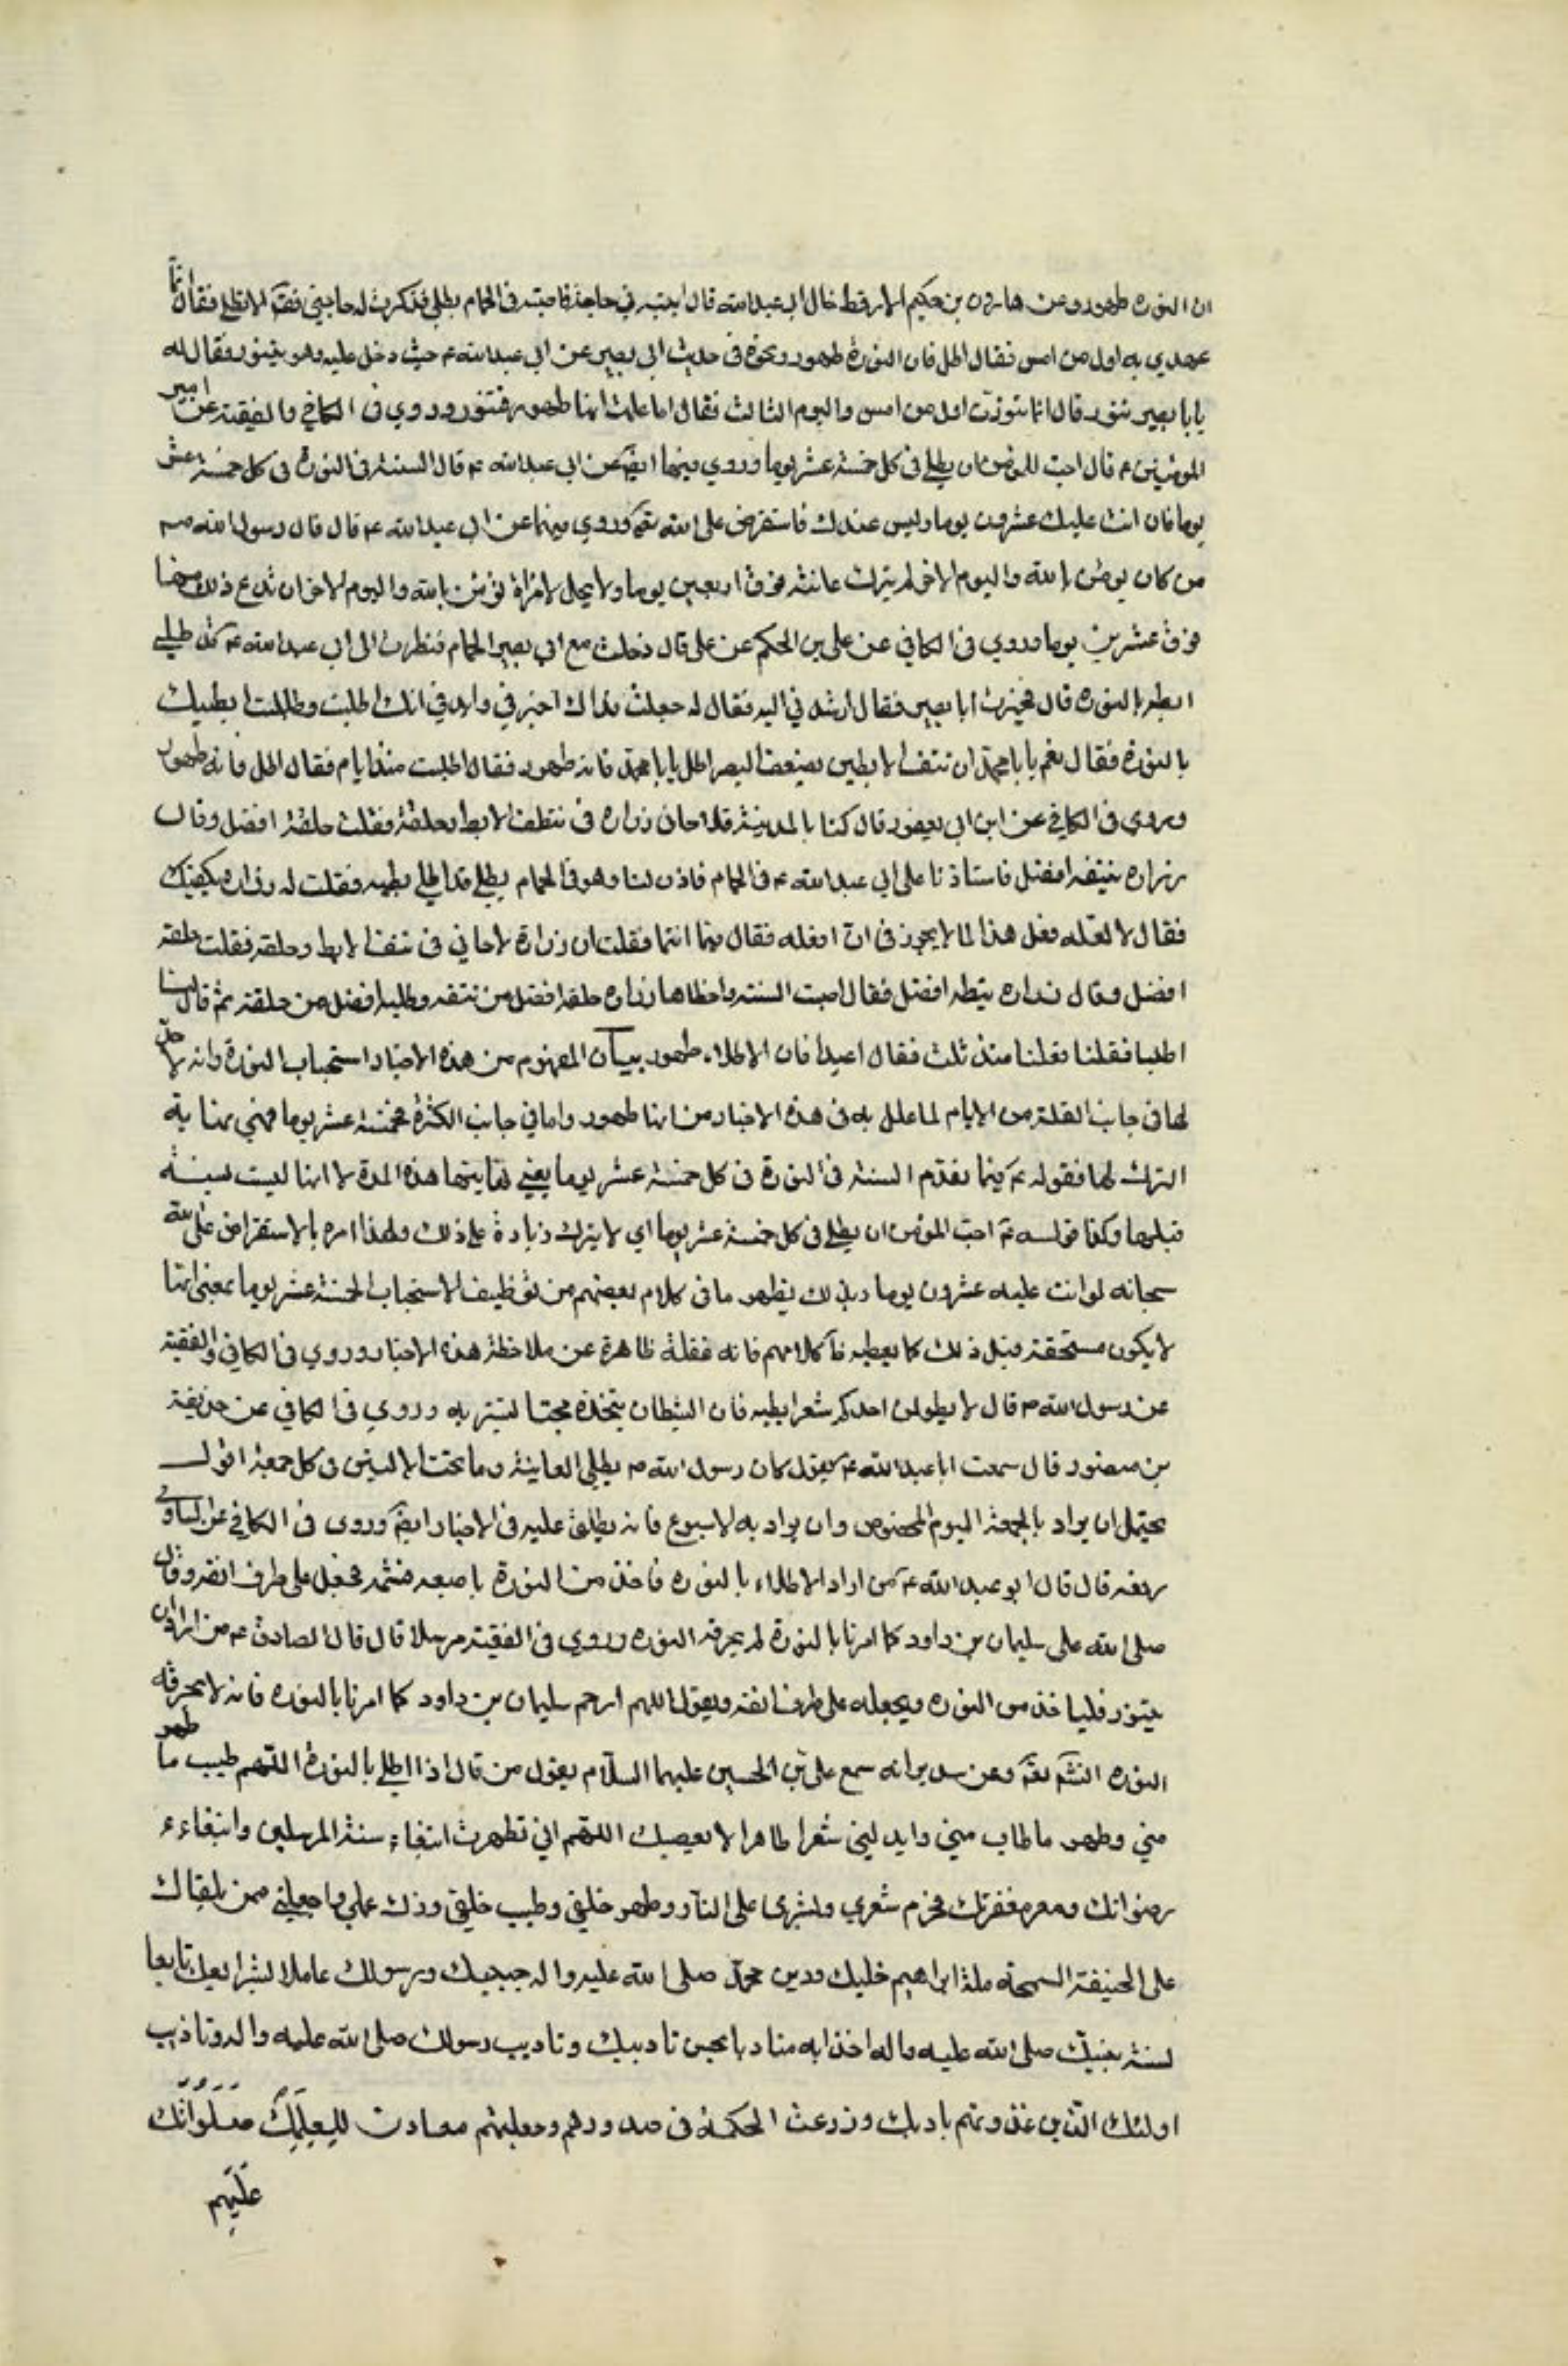 ان النوره طهور وعن هارون بن حكيم الارقط خال ابي عبد الله قال اتيته في حاجة فاصبته في الحمام يطلي فذكرت له حاجتي فقال الا تطلي فقال انما
عهدي به اول من امس فقال اطل فان النورة طهور ونحوه في حديث ابي بصير عن ابي عبد الله ع حيث دخل عليه وهو يتنور فقال له
يابا بصير تنور قال انما تنورت اول من امس واليوم الثالث فقال اما علمت انها طهور فتنور وروي في الكافي والفقيه عن امير
المومنين ع قال احب للمومن ان يطلي في كل خمسة عشر يوما وروي فيهما ايضا عن ابي عبد الله ع قال السنة في النورة في كل خمسة عشر
يوما فان اتت عليك عشرون يوما وليس عندك فاستقرض على الله تعم وروي فيهما عن ابي عبد الله ع قال قال رسول الله صم
من كان يومن بالله واليوم الاخر لم يترك عانته فوق اربعين يوما ولا يحل لامراة تؤمن بالله واليوم الاخر ان تدع ذلك منها
فوق عشرين يوما وروي في الكافي عن علي بن الحكم عن علي قال دخلت مع ابي بصير الحمام فنظرت الى ابي عبد الله ع قد طلى
ابطيه بالنوره قال فخبرت ابا بصير فقال ارشدني اليه فقال له جعلت فداك اخبرني قايدي انك اطليت وطليت ابطيك
بالنورة فقال نعم يابا محمد ان نتف الابطين يضعف البصر اطل يابا محمد فانه طهور فقال اطليت منذ ايام فقال اطل فانه طهور
وروي في الكافي عن ابن ابي يعفور قال كنا بالمدينة فلاحاني زراره في نتف الابط وحلقه فقلت حلقه افضل وقال
زراره نتفه افضل فاستاذنا على ابي عبد الله ع في الحمام فاذن لنا وهو في الحمام يطلي قد اطلى ابطيه فقلت لزراره يكفيك
فقال لا لعله فعل هذا لما لا يجوز في ان افعله فقال فيما انتما فقلت ان زرارة لاحاني في نتف الابط وحلقه فقلت حلقه
افضل وقال زراره نتفه افضل فقال اصبت السنة واخطاها زراره حلقه افضل من نتفه وطليه افضل من حلقه ثم قال لنا
اطليا فقلنا فعلنا منذ ثلث فقال اعيدا فان الاطلاء طهور بيان المفهوم من هذه الاخبار استحباب النورة وانه لا حد
لها في جانب القلة من الايام لما علل به في هذه الاخبار من انها طهور واما في جانب الكثرة فخمسة عشر يوما فهي نهاية
الترك لها فقوله ع فيما تقدم السنة في النورة في كل خمسة عشر يوما يعني نهايتها هذه المدة لا انها ليست بسنة
قبلها وكذا قوله ع احب للمؤمن ان يطلي في كل خمسة عشر يوما اي لا يترك زيادة على ذلك ولهذا امره بالاستقراض على الله
سبحانه لو اتت عليه عشرون يوما وبذلك يظهر ما في كلام بعضهم من توظيف الاستحباب الخمسة عشر يوما بمعنى انها
لا يكون مستحقة قبل ذلك كما يعطيه كلامهم فانه غفلة ظاهرة عن ملاحظة هذه الاخبار وروي في الكافي والفقيه
عن رسول الله ص قال لا يطولن احدكم شعر ابطيه فان الشيطان يتخذه مجنا ليستتر به وروي في الكافي عن حذيفة
بن منصور قال سمعت ابا عبد الله ع يقول كان رسول الله ص يطلي العانة وما تحت الاليين في كل جمعة اقول
يحتمل ان يراد بالجمعة اليوم المخصوص وان يراد به الاسبوع فانه يطلق عليه في الاخبار ايضا وروى في الكافي عن السياري
رفعه قال قال ابو عبد الله ع من اراد الاطلاء بالنوره فاخذ من النورة باصبعه فشمه فجعل على طرف انفه وقال
صلى الله على سليمان بن داود كما امرنا بالنورة لم يحرقه النوره وروي في الفقيه مرسلا قال قال الصادق ع من اراد ان
يتنور فلياخذ من النوره ويجعله على طرف انفه ويقول اللهم ارحم سليمان بن داود كما امرنا بالنوره فانه لا يحرقه
النوره انشم تعم وعن سدير انه سمع علي بن الحسين عليهما السلام يقول من قال اذا اطلى بالنورة اللهم طيب ما طهر
مني وطهر ما طاب مني وابدلني شعرا طاهرا لا يعصيك اللهم اني تطهرت ابتغاء سنة المرسلين وابتغاء
رضوانك ومغفرتك فحرم شعري وبشرى على النار وطهر خلقي وطيب خلقي وزك عملي واجعلني ممن يلقاك
على الحنيفة السمحة ملة ابراهيم خليلك ودين محمد صلى الله عليه واله حبيبك ورسولك عاملا بشرايعك تابعا
لسنة نبيك صلى الله عليه واله اخذا به متادبا بحسن تاديبك وتاديب رسولك صلى الله عليه واله وتاديب
اوليائك الذين غذوتهم بادبك وزرعت الحكمة في صدورهم وجعلتهم معادن لعلمك صلواتك
عليهم